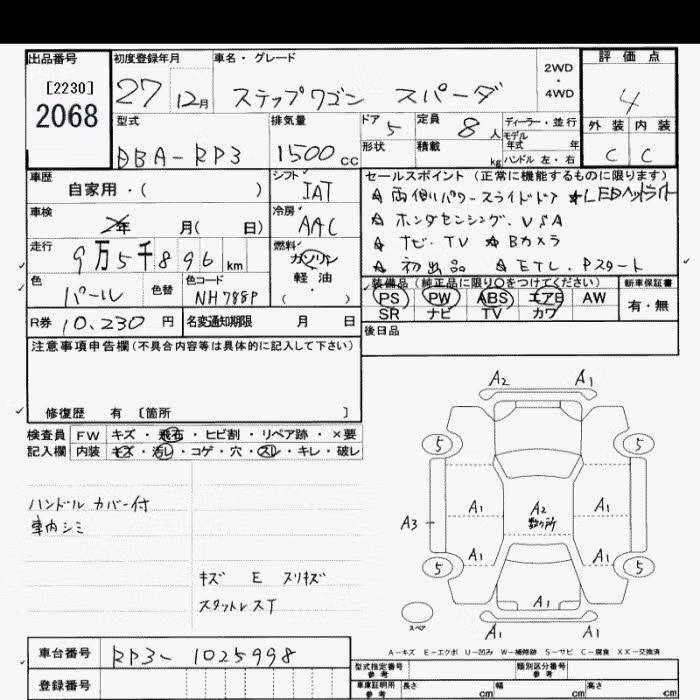 出品番号
[2230]
2068
初度登録年月
27 12月
車名・グレード
ステップワゴン スパーダ
2WD
・
4WD
評価点
4
外装 内装
C C
型式
DBA-RP3
排気量
1500cc
ドア 5
形状
定員 8人
積載 kg
ディーラー・並行
モデル
年式 年
ハンドル 左・右
車歴
自家用・( )
シフト
IAT
車検
年 月( 日)
冷房
AAC
走行
9万5千896km
燃料
ガソリン
軽油
( ・ )
色
パール
色替
色コード
NH788P
R券 10,230円
名変通知期限 月 日
セールスポイント(正常に機能するものに限ります)
☆両側パワースライドドア ☆LEDヘッドライト
☆ホンダセンシング、VSA
☆ナビ・TV ☆Bカメラ
☆初出品 ☆ETC、Pスタート
装備品(純正品に限り○をつけてください)
PS PW ABS エアB AW
SR ナビ TV カワ
新車保証書
有・無
後日品
注意事項申告欄(不具合内容等は具体的に記入して下さい)
修復歴 有 〔箇所 〕
検査員 FW キズ・飛石・ヒビ割・リペア跡・×要
記入欄 内装 キズ・汚レ・コゲ・穴・スレ・キレ・破レ
ハンドルカバー付
車内シミ
キズ E スリキズ
スタットレスT
A2 A1
5 5
A1 A2 A1
数ケ所
A3
A1 A1
5 5
A1
スペア
A1 A1
A-キズ E-エクボ U-凹み W-補修跡 S-サビ C-腐食 XX-交換済
車台番号 RP3-1025998
登録番号
型式指定番号
参考
類別区分番号
参考
車庫証明用
参考
長さ cm 幅 cm 高さ cm